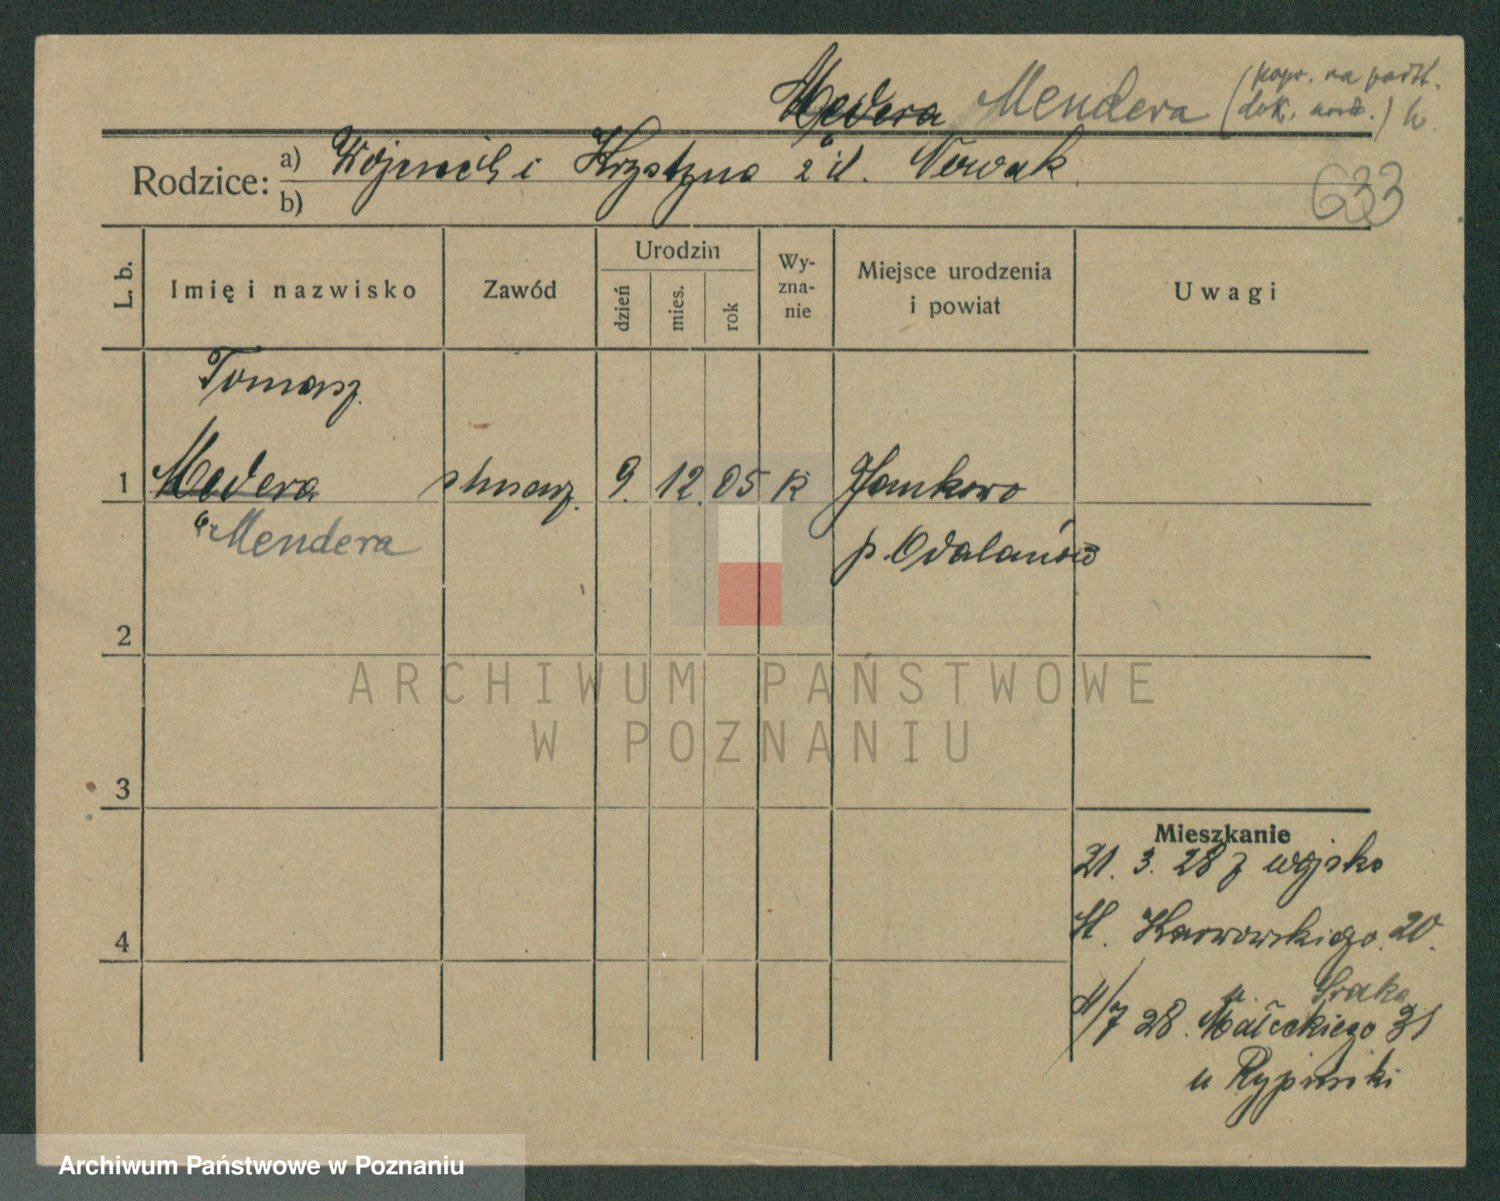 Medera Mendera (popr. na podst.
dok. urodz.)
Rodzice: a) Wojciech i Krystyna z d. Nowak
b)
633
L. b. Imię i nazwisko Zawód Urodzin dzień mies. rok Wy-zna-nie Miejsce urodzenia i powiat Uwagi
Tomasz
1 Medera 9. 12. 05 K Jankowo
Mendera p. Odolanów
2
ARCHIWUM PAŃSTWOWE
W POZNANIU
3
Mieszkanie
21. 3. 28 z wojska
Karwowskiego 20.
u. Sraka
28. Małeckiego 31
u Rypiński
4
Archiwum Państwowe w Poznaniu